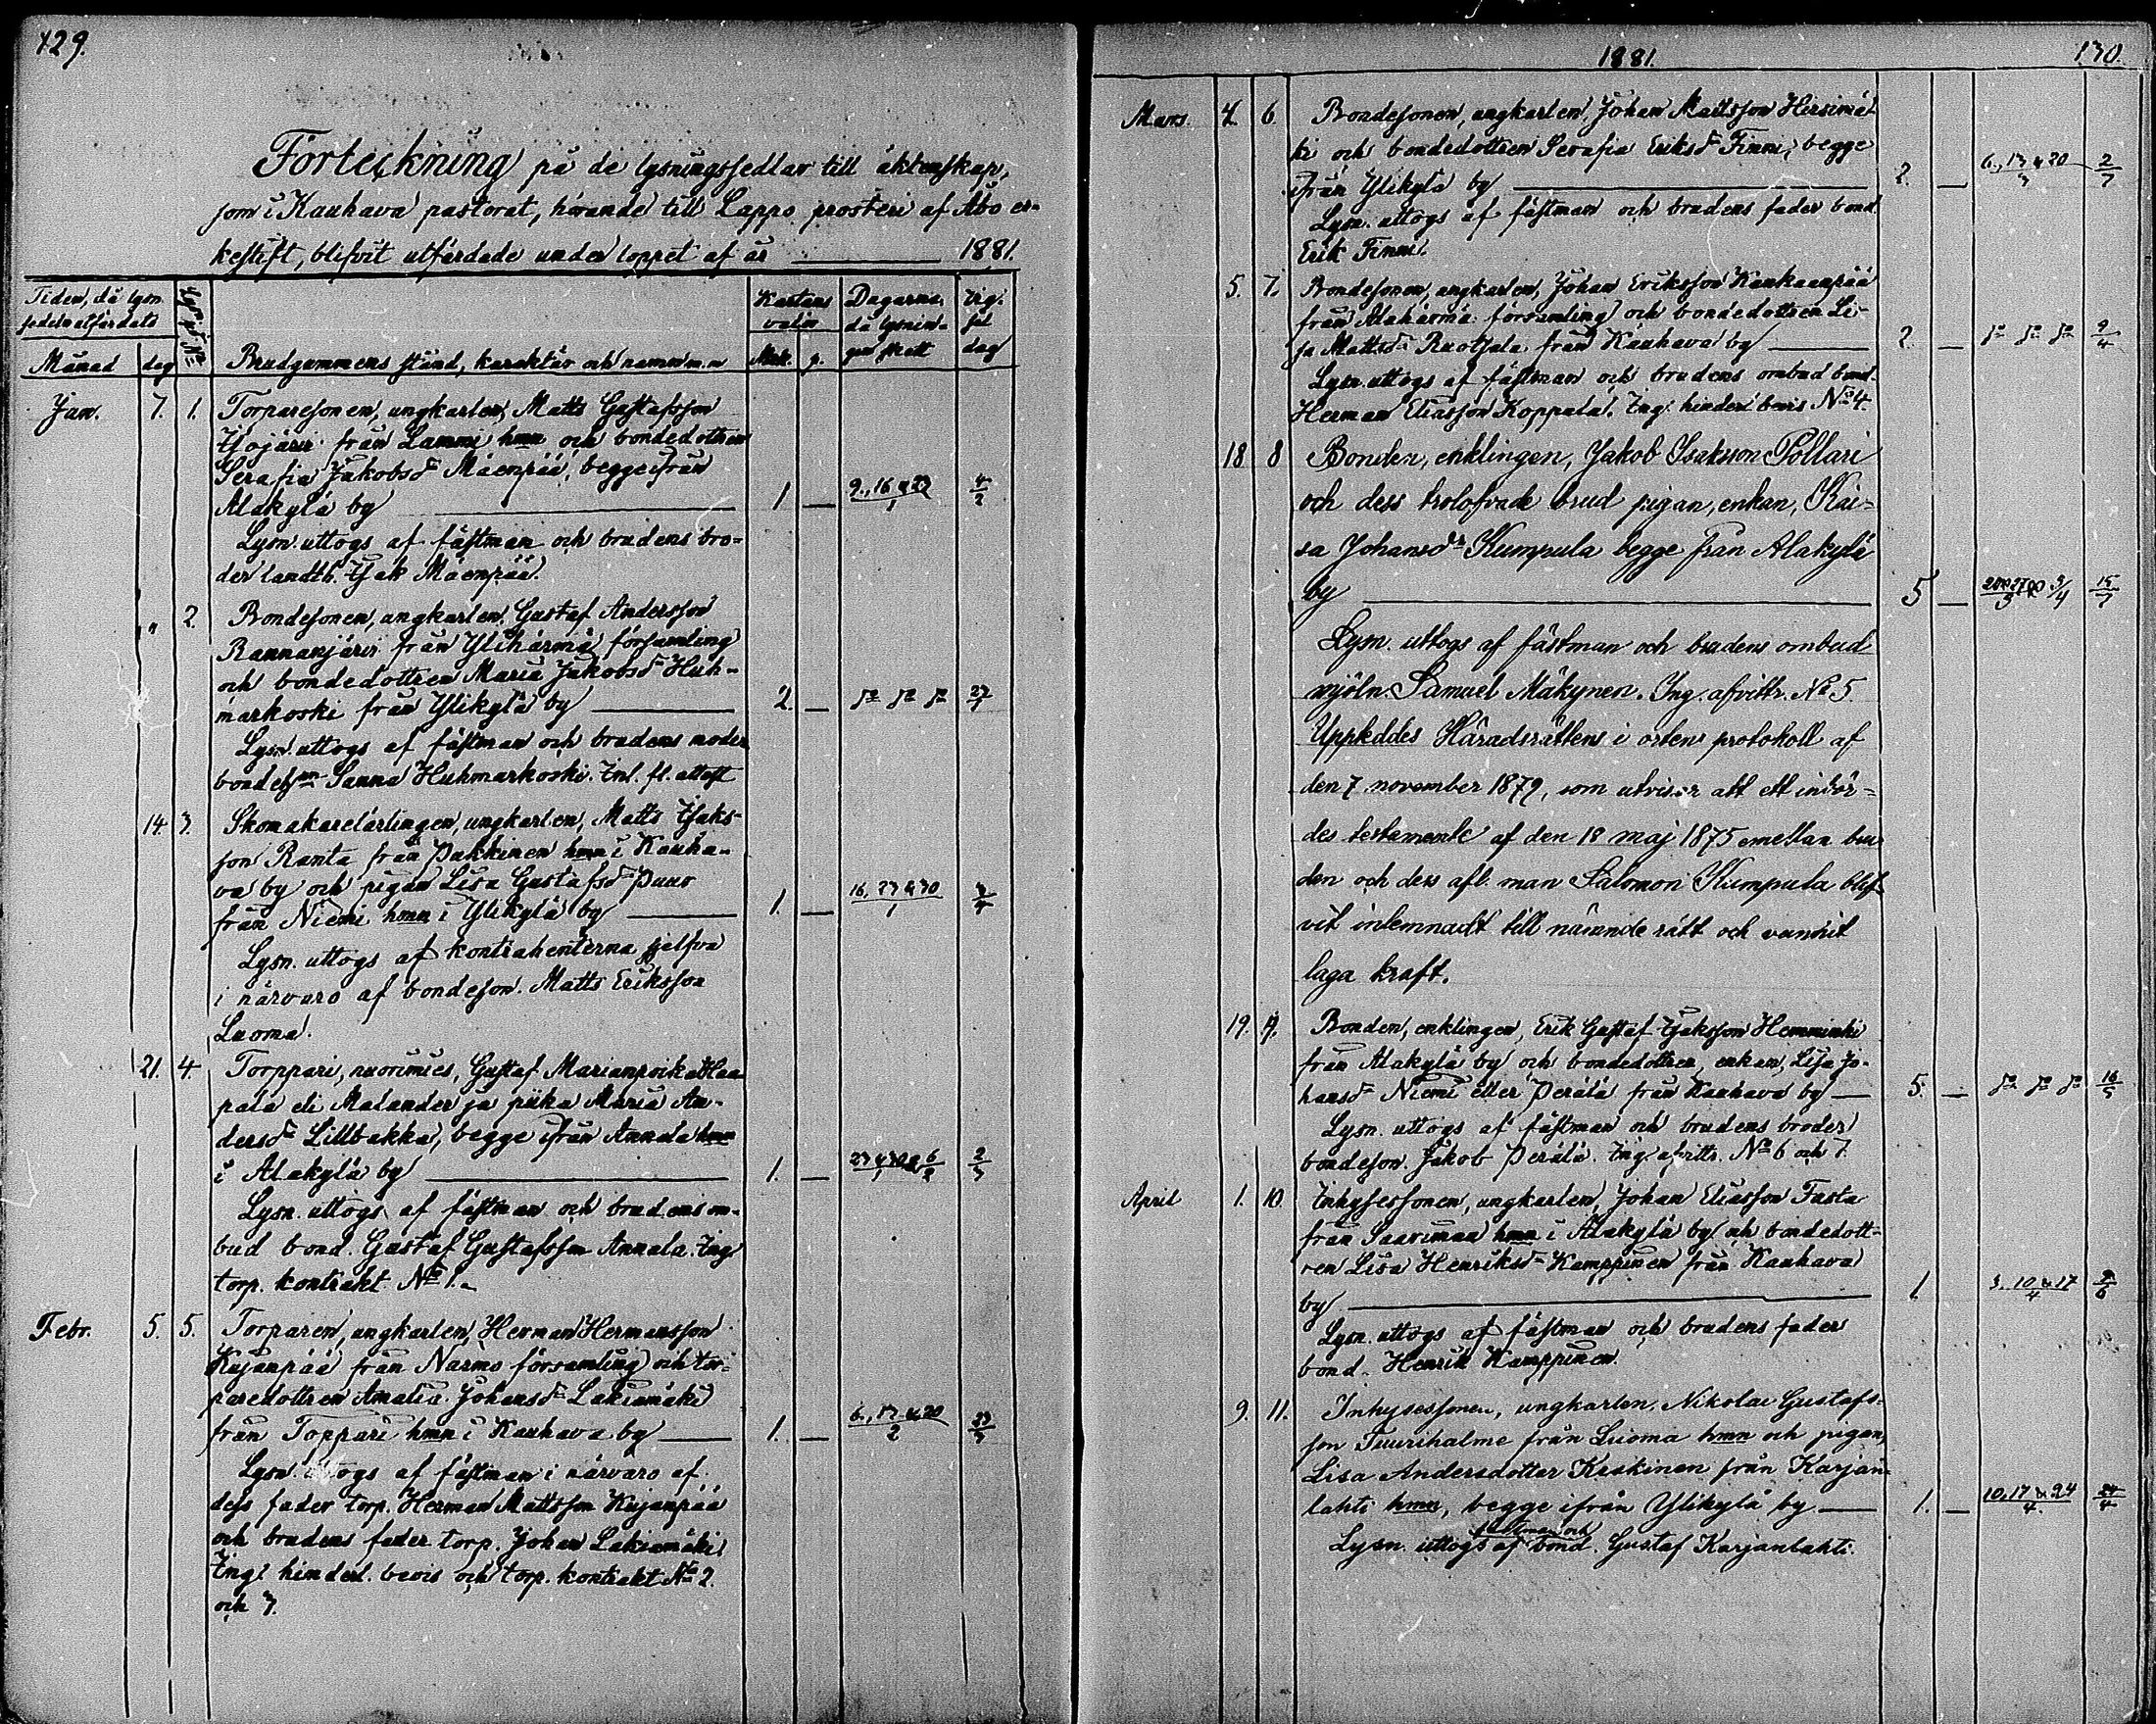 129.
Förteckning på de lysningssedlar till äktenskap,
som i Kauhava pastorat, hörande till Lappo prosteri af Åbo er-
kestift, blifvit utfärdade under loppet af år 1881.
Tiden, då lysn.
sedeln utfärdats
Månad dag
Lysn. N:o
Brudgummens stånd, karaktär och namn m.m
Kartans
valör
Mrk. p.
Dagarna
då lysnin-
gen skett
Vig-
sel
dag
Jan. 7. 1. Torparesonen, ungkarlen, Matts Gustafsson
Isojärvi från Lammi hmn och bondedottren
Serafia Jakobsd:r Mäenpää, begge från
Alakylä by 1 — 9., 16 & 23/1 4/2
Lysn. uttogs af fästman och brudens bro-
der landtb. Isak Mäenpää.
" 2. Bondesonen, ungkarlen, Gustaf Andersson
Rannanjärvi från Ylihärmä församling
och bondedottren Maria Jakobsd:r Huh-
markoski från Ylikylä by 2. — d:o d:o d:o 27/
Lysn. uttogs af fästman och brudens moder
bondehn Sanna Huhmarkoski. Inl. fl. attest
14. 3. Skomakarelärlingen, ungkarlen, Matts Isaks-
son Ranta från Pukkinen hmn i Kauha-
va by och pigan Lisa Gustafsd:r Puus
från Niemi hmn i Ylikylä by 1. — 16. 23 & 30/1 3/4
Lysn. uttogs af kontrahenterna sjelfva
i närvaro af bondeson. Matts Eriksson
Luoma.
21. 4. Torppari, nuorimies, Gustaf Marianpoika Haa-
pala eli Malander ja piika Maria An-
dersd:r Lillbakka, begge ifrån Annala hmn
i Alakylä by 1. — 23 & 30/1 & 6/2 2/3
Lysn. uttogs af fästman och brudens om-
bud bond. Gustaf Gustafsson Annala. Ing.
torp. kontrakt N:o 1.
Febr. 5. 5. Torparen, ungkarlen, Herman Hermansson
Kujanpää från Närmo församling och tor-
paredottren Amalia Johansd:r Lakiamäki
från Toppari hmn i Kauhava by 1. — 6., 13 & 20/2 23/3
Lysn. uttogs af fästman i närvaro af
dess fader torp. Herman Mattsson Kujanpää
och brudens fader torp. Johan Lakiamäki.
Ing. hinderl. bevis och torp. kontrakt N:o 2.
och 3.
1881. 130.
Mars. 4. 6. Bondesonen, ungkarlen, Johan Mattsson Hirsimä-
ki och bondedottren Serafia Eriksd:r Finni, begge
ifrån Ylikylä by 2. — 6., 13 & 20/3 2/7
Lysn. uttogs af fästman och brudens fader bond.
Erik Finni.
5. 7. Bondesonen, ungkarlen, Johan Eriksson Kankaanpää
från Alahärmä församling och bondedottren Li-
sa Mattsd:r Ruotsala från Kauhava by 2. — d:o d:o d:o 2/4
Lysn. uttogs af fästman och brudens ombud bond.
Herman Eliasson Koppala. Ing. hinderl. bevis N:o 4.
18 8 Bonden, enklingen, Jakob Isaksson Pollari
och dess trolofvade brud pigan, enkan, Kai-
sa Johansd:r Kumpula begge från Alakylä
by 5 — 20 & 27/3 & 3/4 15/7
Lysn. uttogs af fästman och brudens ombud
mjöln. Samuel Mäkynen. Ing. afvittr. N:o 5.
Uppteddes Häradsrättens i orten protokoll af
den 7 november 1879, som utvisar att ett inbör-
des testamente af den 18 maj 1875 emellan bru-
den och dess afl. man Salomon Kumpula blif-
vit inlemnadt till nämnde rätt och vunnit
laga kraft.
19. 9. Bonden, enklingen, Erik Gustaf Isaksson Hemminki
från Alakylä by och bondedottren, enkan, Lisa Jo-
hansd:r Niemi eller Perälä från Kauhava by 5. — d:o d:o d:o 16/5
Lysn. uttogs af fästman och brudens broder
bondeson. Jakob Perälä. Ing. afvittr. N:o 6 och 7.
April 1. 10. Inhysessonen, ungkarlen, Johan Eliasson Fasta
från Saarimaa hmn i Alakylä by och bondedott-
ren Lisa Henriksd:r Kamppinen från Kauhava
by 1. 3. 10 & 17/4 9/6
Lysn. uttogs af fästman och brudens fader
bond. Henrik Kamppinen.
9. 11. Inhysessonen, ungkarlen, Nikolai Gustafs-
son Tuurihalme från Luoma hmn och pigan,
Lisa Andersdotter Keskinen från Karjan-
lahti hmn, begge ifrån Ylikylä by 1. — 10. 17 & 24/4. 24/4
Lysn. uttogs af fästman och bond. Gustaf Karjanlahti.